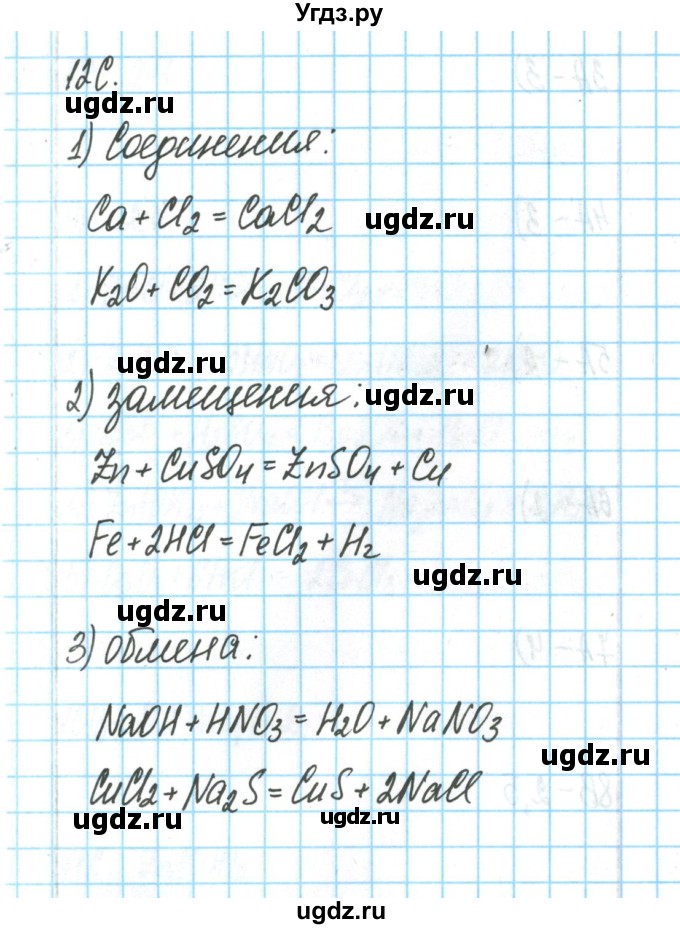 Угдз.ру
12С.
ugdz.ru
1) Соединения:
Ca + Cl2 = CaCl2 ugdz.ru
K2O + CO2 = K2CO3
ugdz.ru
2) замещения: ugdz.ru
Zn + CuSO4 = ZnSO4 + Cu
Fe + 2HCl = FeCl2 + H2
ugdz.ru
ugdz.ru
3) обмена:
NaOH + HNO3 = H2O + NaNO3
ugdz.ru
CuCl2 + Na2S = CuS + 2NaCl
ugdz.ru ugdz.ru
ugdz.ru